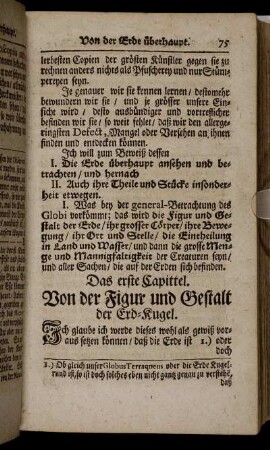 Von der Erde überhaupt. 75
lerbesten Copien der grösten Künstler gegen sie zu
rechnen anders nichts als Pfuscherey und nur Stüm-
pereyen seyn.
Je genauer wir sie kennen lernen / destomehr
bewundern wir sie / und je grösser unsere Ein-
sicht wird / desto ausbündiger und vortrefflicher
befinden wir sie / so weit fehlet / daß wir den allerge-
ringsten Defect, Mangel oder Versehen an ihnen
finden und entdecken können.
Ich will zum Beweiß dessen
I. Die Erde überhaupt ansehen und be-
trachten / und hernach
II. Auch ihre Theile und Stücke insonder-
heit erwegen.
I. Was bey der general-Betrachtung des
Globi vorkömmt; das wird die Figur und Ge-
stalt der Erde / ihr grosser Cörper / ihre Bewe-
gung / ihr Ort und Stelle / die Eintheilung
in Land und Wasser / und dann die grosse Men-
ge und Mannigfaltigkeit der Creaturen seyn /
und aller Sachen / die auf der Erden sich befinden.
Das erste Capittel.
Von der Figur und Gestalt
der Erd-Kugel.
Ich glaube ich werde dieses wohl als gewiß vor-
aus setzen können / daß die Erde ist 1.) oder
doch
1.) Ob gleich unser Globus Terraqueus oder die Erde Kugel-
rund ist / so ist doch solches eben nicht gantz genau zu verstehē,
daß